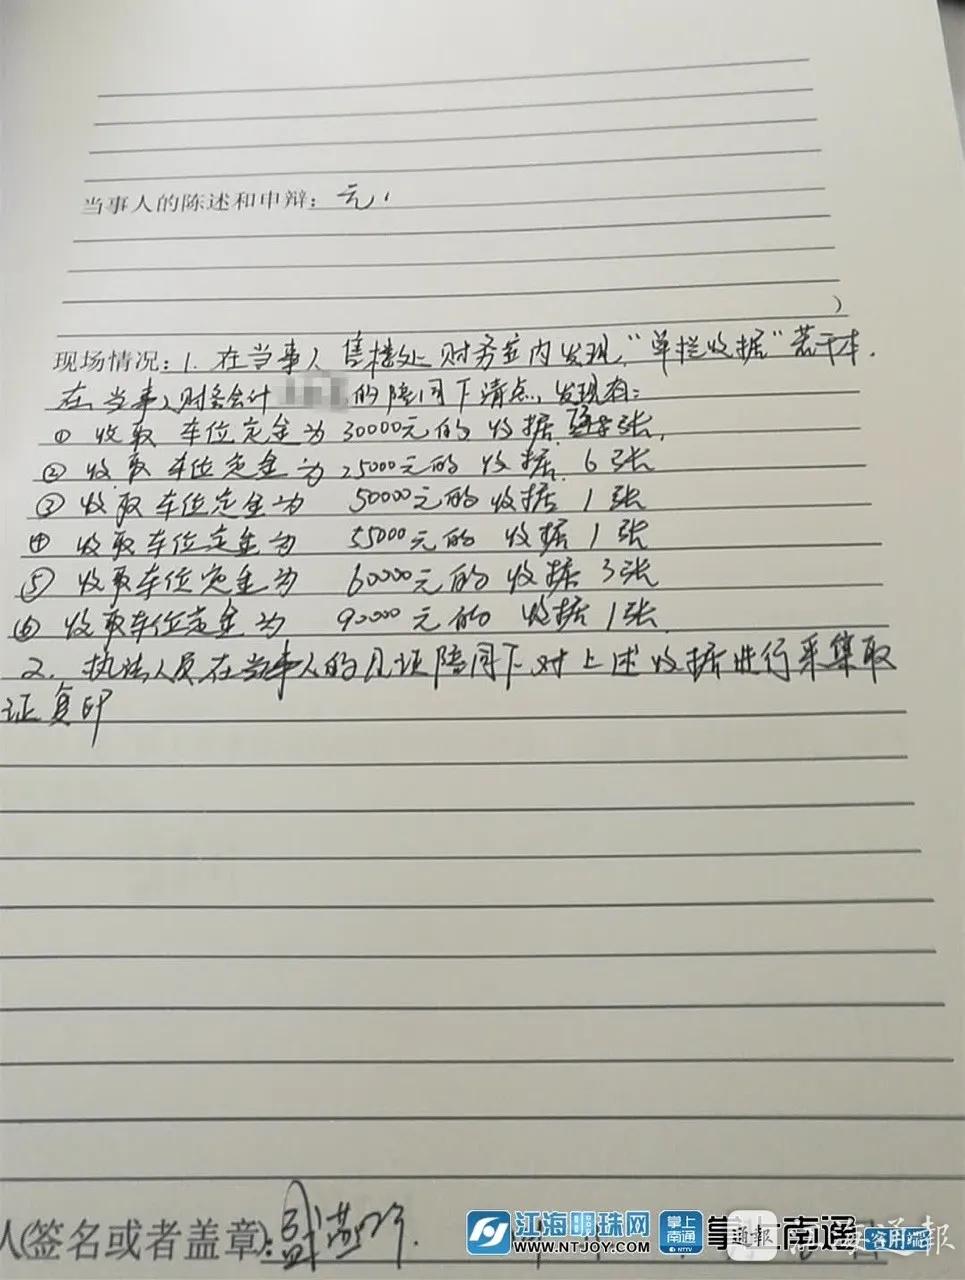 当事人的陈述和申辩：无，
）
现场情况：1. 在当事人售楼处财务室内发现，“单栏收据”若干本，
在当事人财务会计 的陪同下清点，发现有：
① 收取 车位定金为 30000元的 收据 张，
② 收取 车位定金为 25000元的 收据 6 张
③ 收取 车位定金为 50000元的 收据 1 张
④ 收取车位定金为 55000元的 收据 1 张
⑤ 收取车位定金为 60000元的 收据 3张
⑥ 收取车位定金为 90000元的 收据 1张
2. 执法人员在当事人的见证陪同下对上述收据进行采集取
证复印
人(签名或者盖章):
江海明珠网 掌上南通 掌上南通 客户端
WWW.NTJOY.COM NTTV
通報 海通報